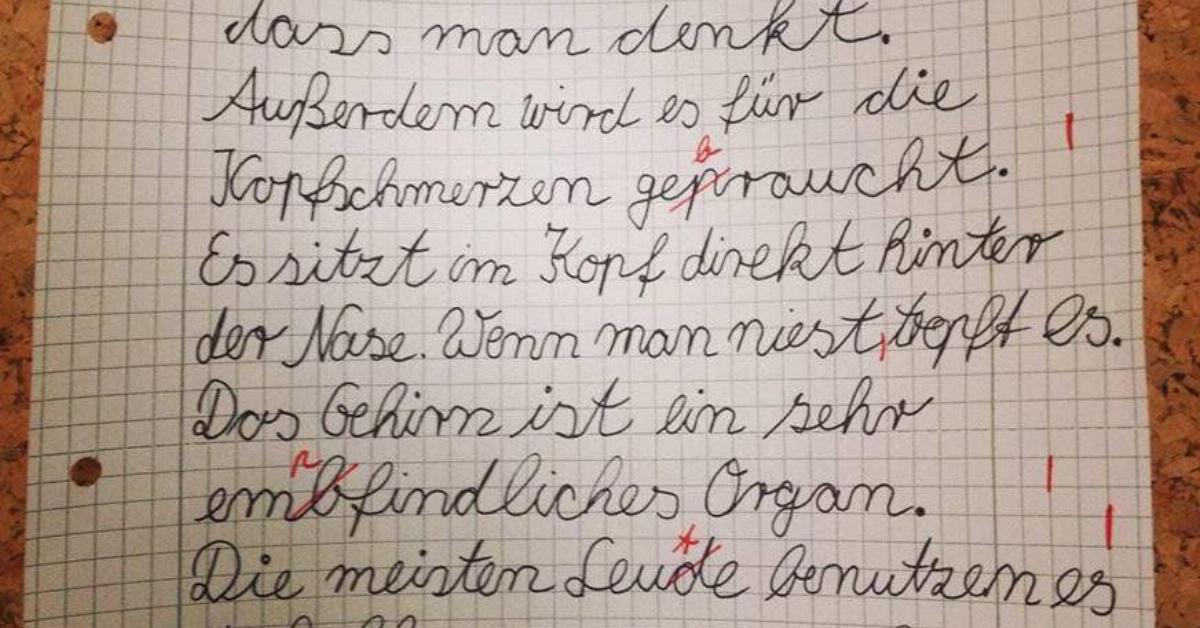 dass man denkt.
Außerdem wird es für die
Kopfschmerzen gepraucht.
Es sitzt im Kopf direkt hinter
der Nase. Wenn man niest, tropft es.
Das Gehirn ist ein sehr
embfindliches Organ.
Die meisten Leude benutzen es